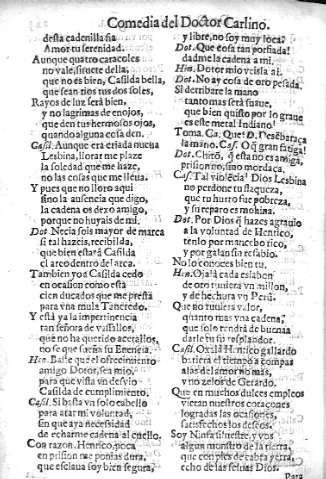 Comedia del Doctor Carlino.
desta cadenilla fia
Amor tu serenidad.
Aunque quatro caracoles
no vale, siruete della,
que no es bien, Casilda bella,
que sean tios tus dos soles,
Rayos de luz será bien,
y no lagrimas de enojos,
que den tus hermosos ojos,
quando alguna cosa den.
Casil. Aunque era criada nueua
Lesbina, llorar me plaze
la soledad que me haze,
no las cosas que me lleua.
Y pues que no lloro aqui
sino la ausencia que digo,
la cadena os dexo amigo,
porque no huyais de mi.
Dot. Necia sois mayor de marca
si tal hazeis, recibilda,
que bien estará Casilda
el arco dentro del arca.
Tambien yo a Casilda cedo
en ocasion como està
cien ducados que me presta
para vna mula Tancredo.
Y està ya la impertinencia
tan señora de vassallos,
que no ha querido acetallos,
no sè que sarna es Enencia.
Hen. Baste que el ofrecimiento
amigo Dotor, sea mio,
para que vista vn desvio
Casilda de cumplimiento.
Casil. Si basta vn solo cabello
para atar mi voluntad,
sin que aya necesidad
de echarme cadena al cuello.
Con razon, Henrico, poca
en prision me ponias dura,
que esclaua soy bien segura,
y libre, no soy muy loca.
Dot. Que cosa tan porfiada!
dadme la cadena a mi.
Hen. Dotor mio veisla ai.
Dot. No ay cosa de oro pesada.
Si derribare la mano
tanto mas serà suaue,
que bien quisto por lo graue
es este metal Indiano!
Toma. Ca. Que? D. Desebaraça
la mano. Cas. O q̃ gran fatiga!
Dot. Chitõ, q̃ esta no es amiga,
prision no, sino mordaça,
Cas. Tal violẽcia! Dios Lesbina
no perdone tu flaqueza,
que tu hurto fue pobreza,
y su reparo es mohina.
Dot. Por Dios q̃ hazes agrauio
a la voluntad de Henrico,
tenlo por mancebo rico,
y por galan sin resabio.
No lo conoces bien tu.
Hen. Ojalà cada eslaben
de oro tuuiera vn millon,
y de hechura vn Perù.
Que no tuuiera valor,
quanto mas vna cadena,
que solo tendrà de buena
darle tu su resplandor.
Casil. Oxalà Henrico gallardo
batiera el tiempo a compas
alas del amor no mas,
y no zelos de Gerardo.
Que en muchos dulces empleos
vieran nuestros coraçones
logradas las ocasiones,
satisfechos los deseos.
Soy Ninfa siluestre, y vos
algun monstro de la tierra,
que con pies de cabra yerra,
echo de las seluas Dios.
Para